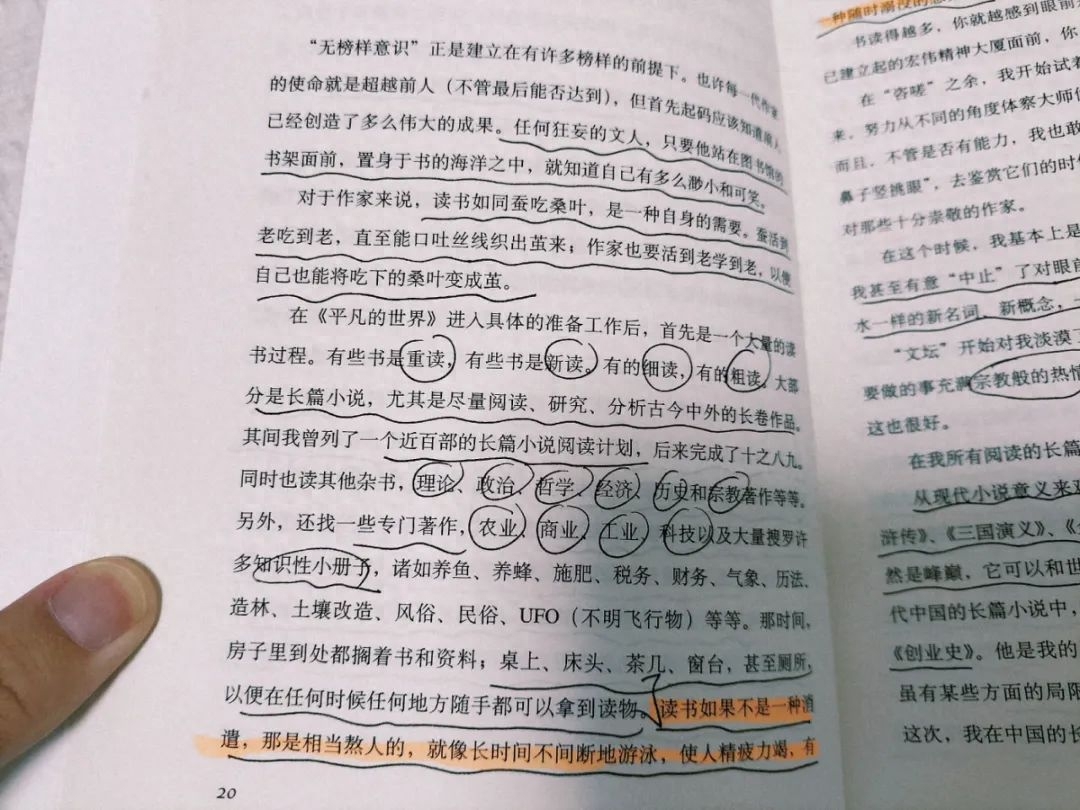 “无榜样意识”正是建立在有许多榜样的前提下。也许每一代作家
的使命就是超越前人（不管最后能否达到），但首先起码应该知道前人
已经创造了多么伟大的成果。任何狂妄的文人，只要他站在图书馆的
书架面前，置身于书的海洋之中，就知道自己有多么渺小和可笑。
对于作家来说，读书如同蚕吃桑叶，是一种自身的需要。蚕活到
老吃到老，直至能口吐丝线织出茧来；作家也要活到老学到老，以便
自己也能将吃下的桑叶变成茧。
在《平凡的世界》进入具体的准备工作后，首先是一个大量的读
书过程。有些书是重读，有些书是新读。有的细读，有的粗读。大部
分是长篇小说，尤其是尽量阅读、研究、分析古今中外的长卷作品。
其间我曾列了一个近百部的长篇小说阅读计划，后来完成了十之八九。
同时也读其他杂书，理论、政治、哲学、经济、历史和宗教著作等等。
另外，还找一些专门著作，农业、商业、工业、科技以及大量搜罗许
多知识性小册子，诸如养鱼、养蜂、施肥、税务、财务、气象、历法、
造林、土壤改造、风俗、民俗、UFO（不明飞行物）等等。那时间，
房子里到处都搁着书和资料；桌上、床头、茶几、窗台，甚至厕所，
以便在任何时候任何地方随手都可以拿到读物。读书如果不是一种消
遣，那是相当熬人的，就像长时间不间断地游泳，使人精疲力竭，有
20
一种随时溺没的感
书读得越多，你就越感到眼前
已建立起的宏伟精神大厦面前，你
在“咨嗟”之余，我开始试着
来。努力从不同的角度体察大师
而且，不管是否有能力，我也敢
鼻子竖挑眼”，去鉴赏它们的时
对那些十分崇敬的作家。
在这个时候，我基本上是
我甚至有意“中止”了对眼前
水一样的新名词、新概念，
“文坛”开始对我淡漠了
要做的事充满宗教般的热情
这也很好。
在我所有阅读的长篇
从现代小说意义来
浒传》、《三国演义》、
然是峰巅，它可以和世
代中国的长篇小说中，
《创业史》。他是我的
虽有某些方面的局限
这次，我在中国的长